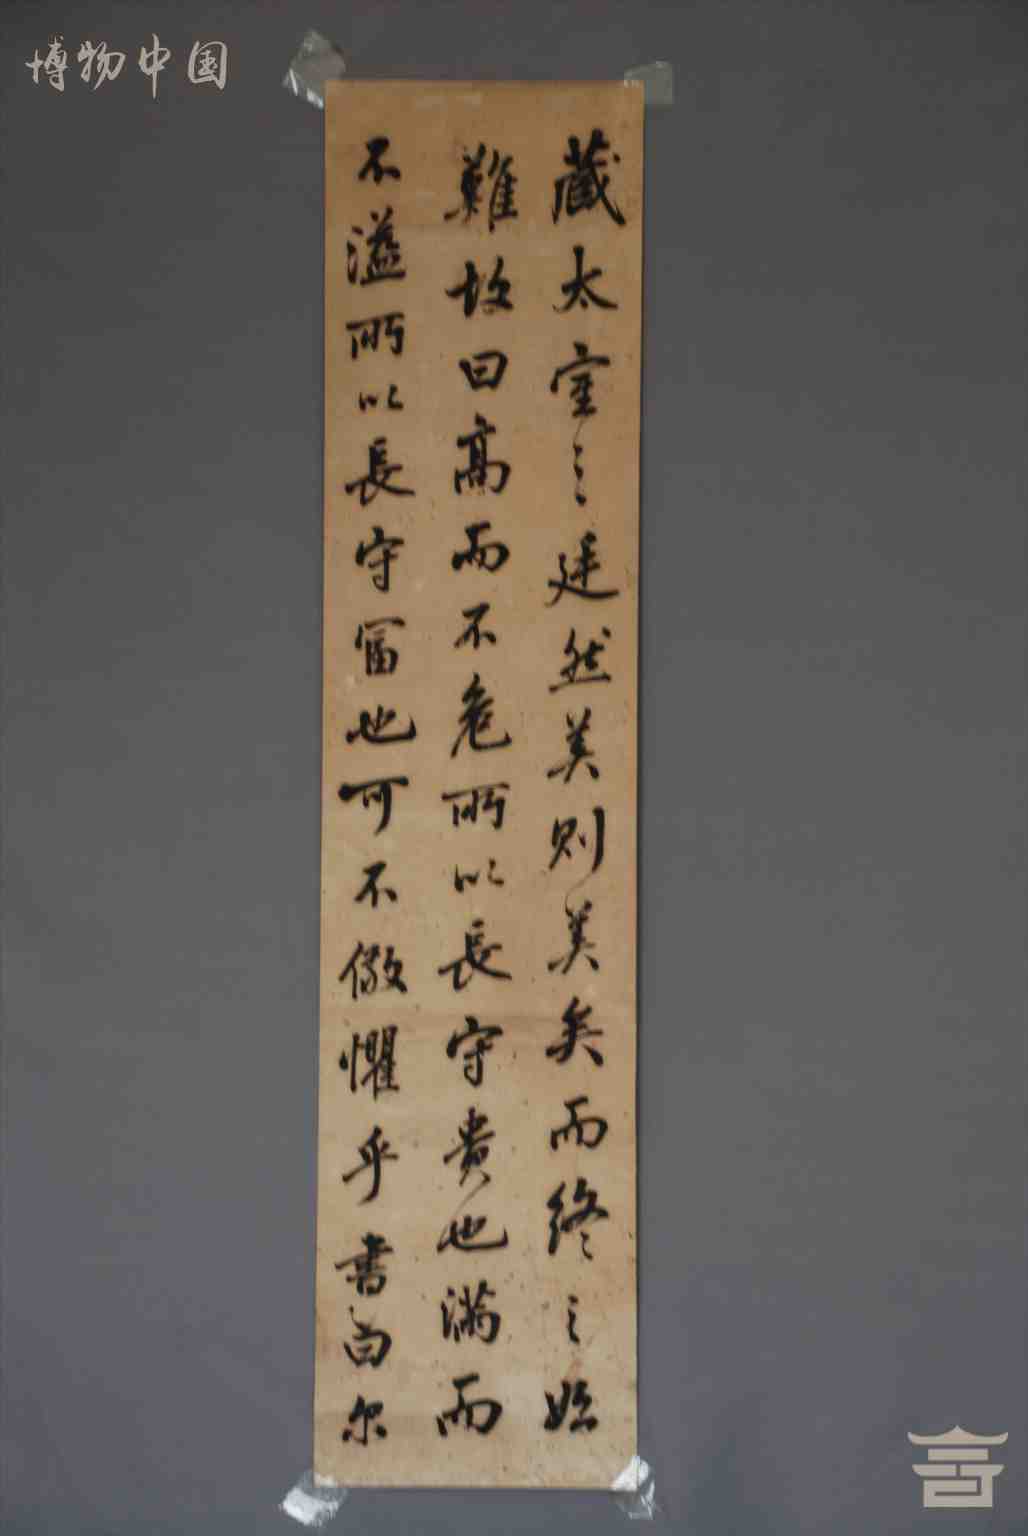 博物中国
藏太室之廷然美則美矣而終之始
難故曰高而不危所以長守貴也滿而
不溢所以長守富也可不儆懼乎書曰尔